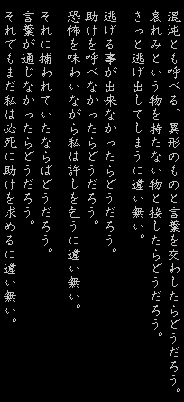 混沌とも呼べる、異形のものと言葉を交わしたらどうだろう。
哀れみという物を持たない物と接したらどうだろう。
きっと逃げ出してしまうに違い無い。
逃げる事が出来なかったらどうだろう。
助けを呼べなかったらどうだろう。
恐怖を味わいながら私は許しを乞うに違い無い。
それに捕われていたならばどうだろう。
言葉が通じなかったらどうだろう。
それでもまだ私は必死に助けを求めるに違い無い。